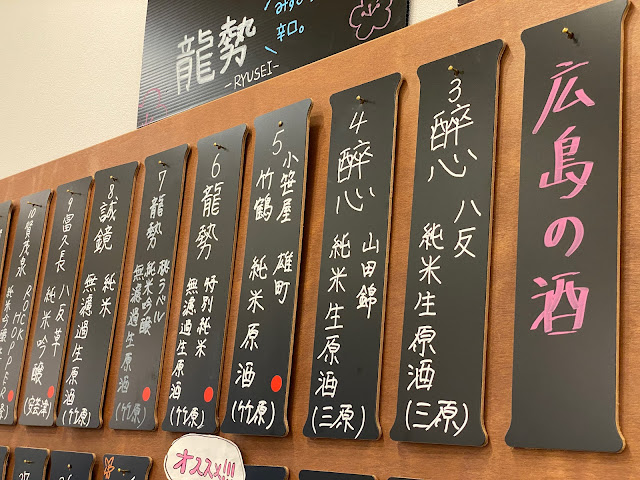 辛口。
龍勢
-RYUSEI-
広島の酒
3
醉心
八反
純米生原酒
(三原)
4
醉心
山田錦
純米生原酒
(三原)
5
小笹屋
竹鶴
雄町
純米原酒
(竹原)
6
龍勢
特別純米
無濾過生原酒
(竹原)
7
龍勢
ラベル
純米吟醸
無濾過生原酒
(竹原)
8
誠鏡
純米
無濾過生原酒
(竹原)
9
富久長
八反草
純米吟醸
(安芸津)
10
賀茂泉
ROCK HOPPER
純米吟醸
オススメ!!!